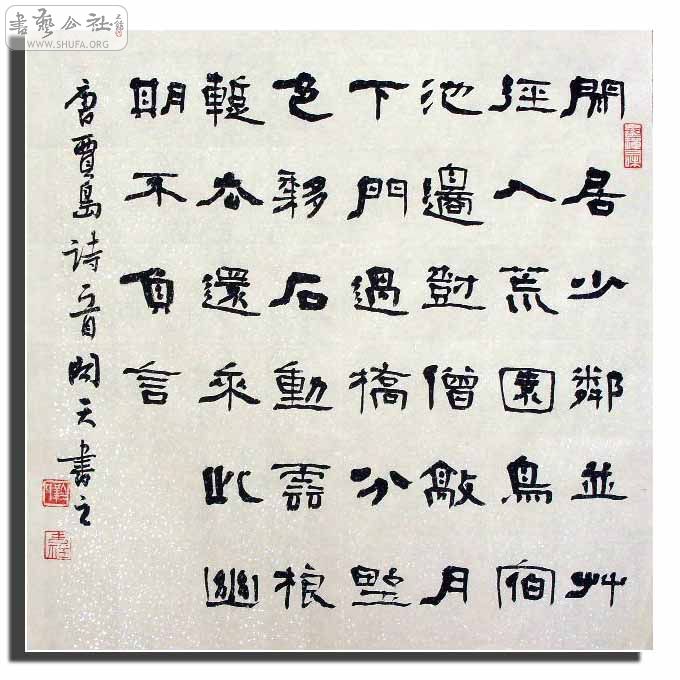 書藝公社
WWW.SHUFA.ORG
閒居少鄰並艸
徑入荒園鳥宿
池邊對僧敲月
下門過橋分野
色移石動雲根
暫去還來此幽
期不負言
唐賈島詩一首天書之